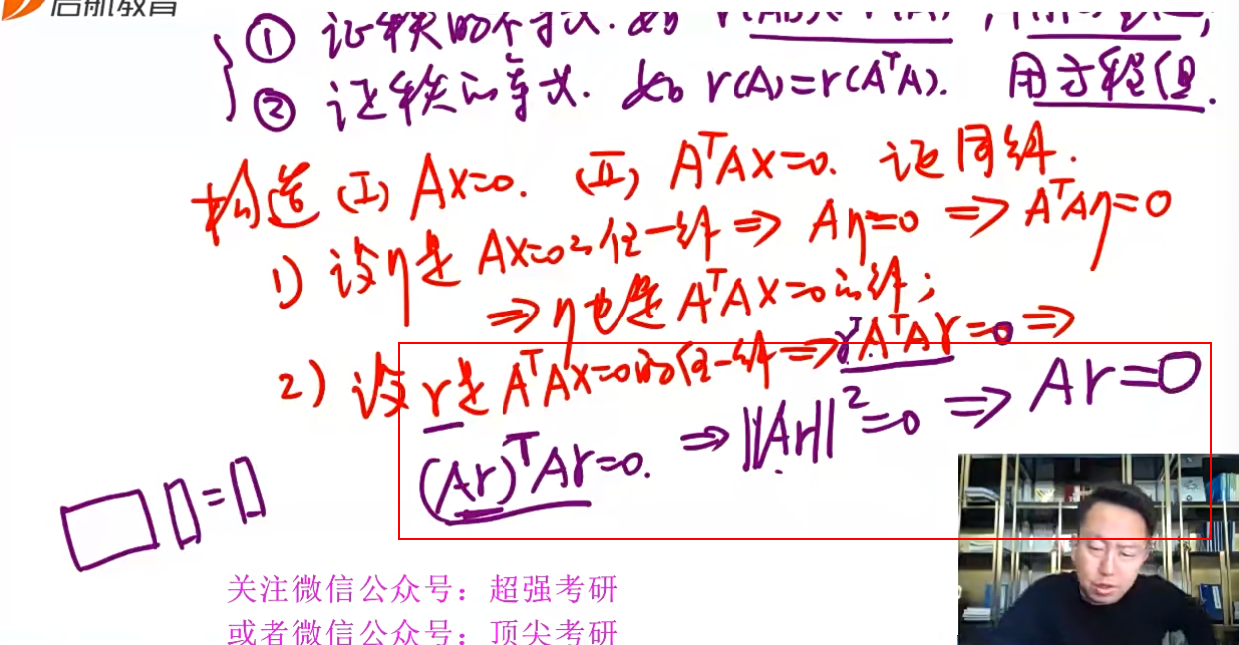 启航教育
① 证秩的不等式. 如
② 证秩的等式. 如 r(A)=r(AᵀA). 用方程组.
构造 (I) Ax=0. (II) AᵀAx=0. 证同解.
1) 设η是 Ax=0的任一解 ⇒ Aη=0 ⇒ AᵀAη=0
⇒ η也是 AᵀAx=0的解;
2) 设γ是 AᵀAx=0的任一解 ⇒ γᵀAᵀAγ=0 ⇒
(Aγ)ᵀAγ=0. ⇒ ||Aγ||²=0 ⇒ Aγ=0
关注微信公众号：超强考研
或者微信公众号：顶尖考研